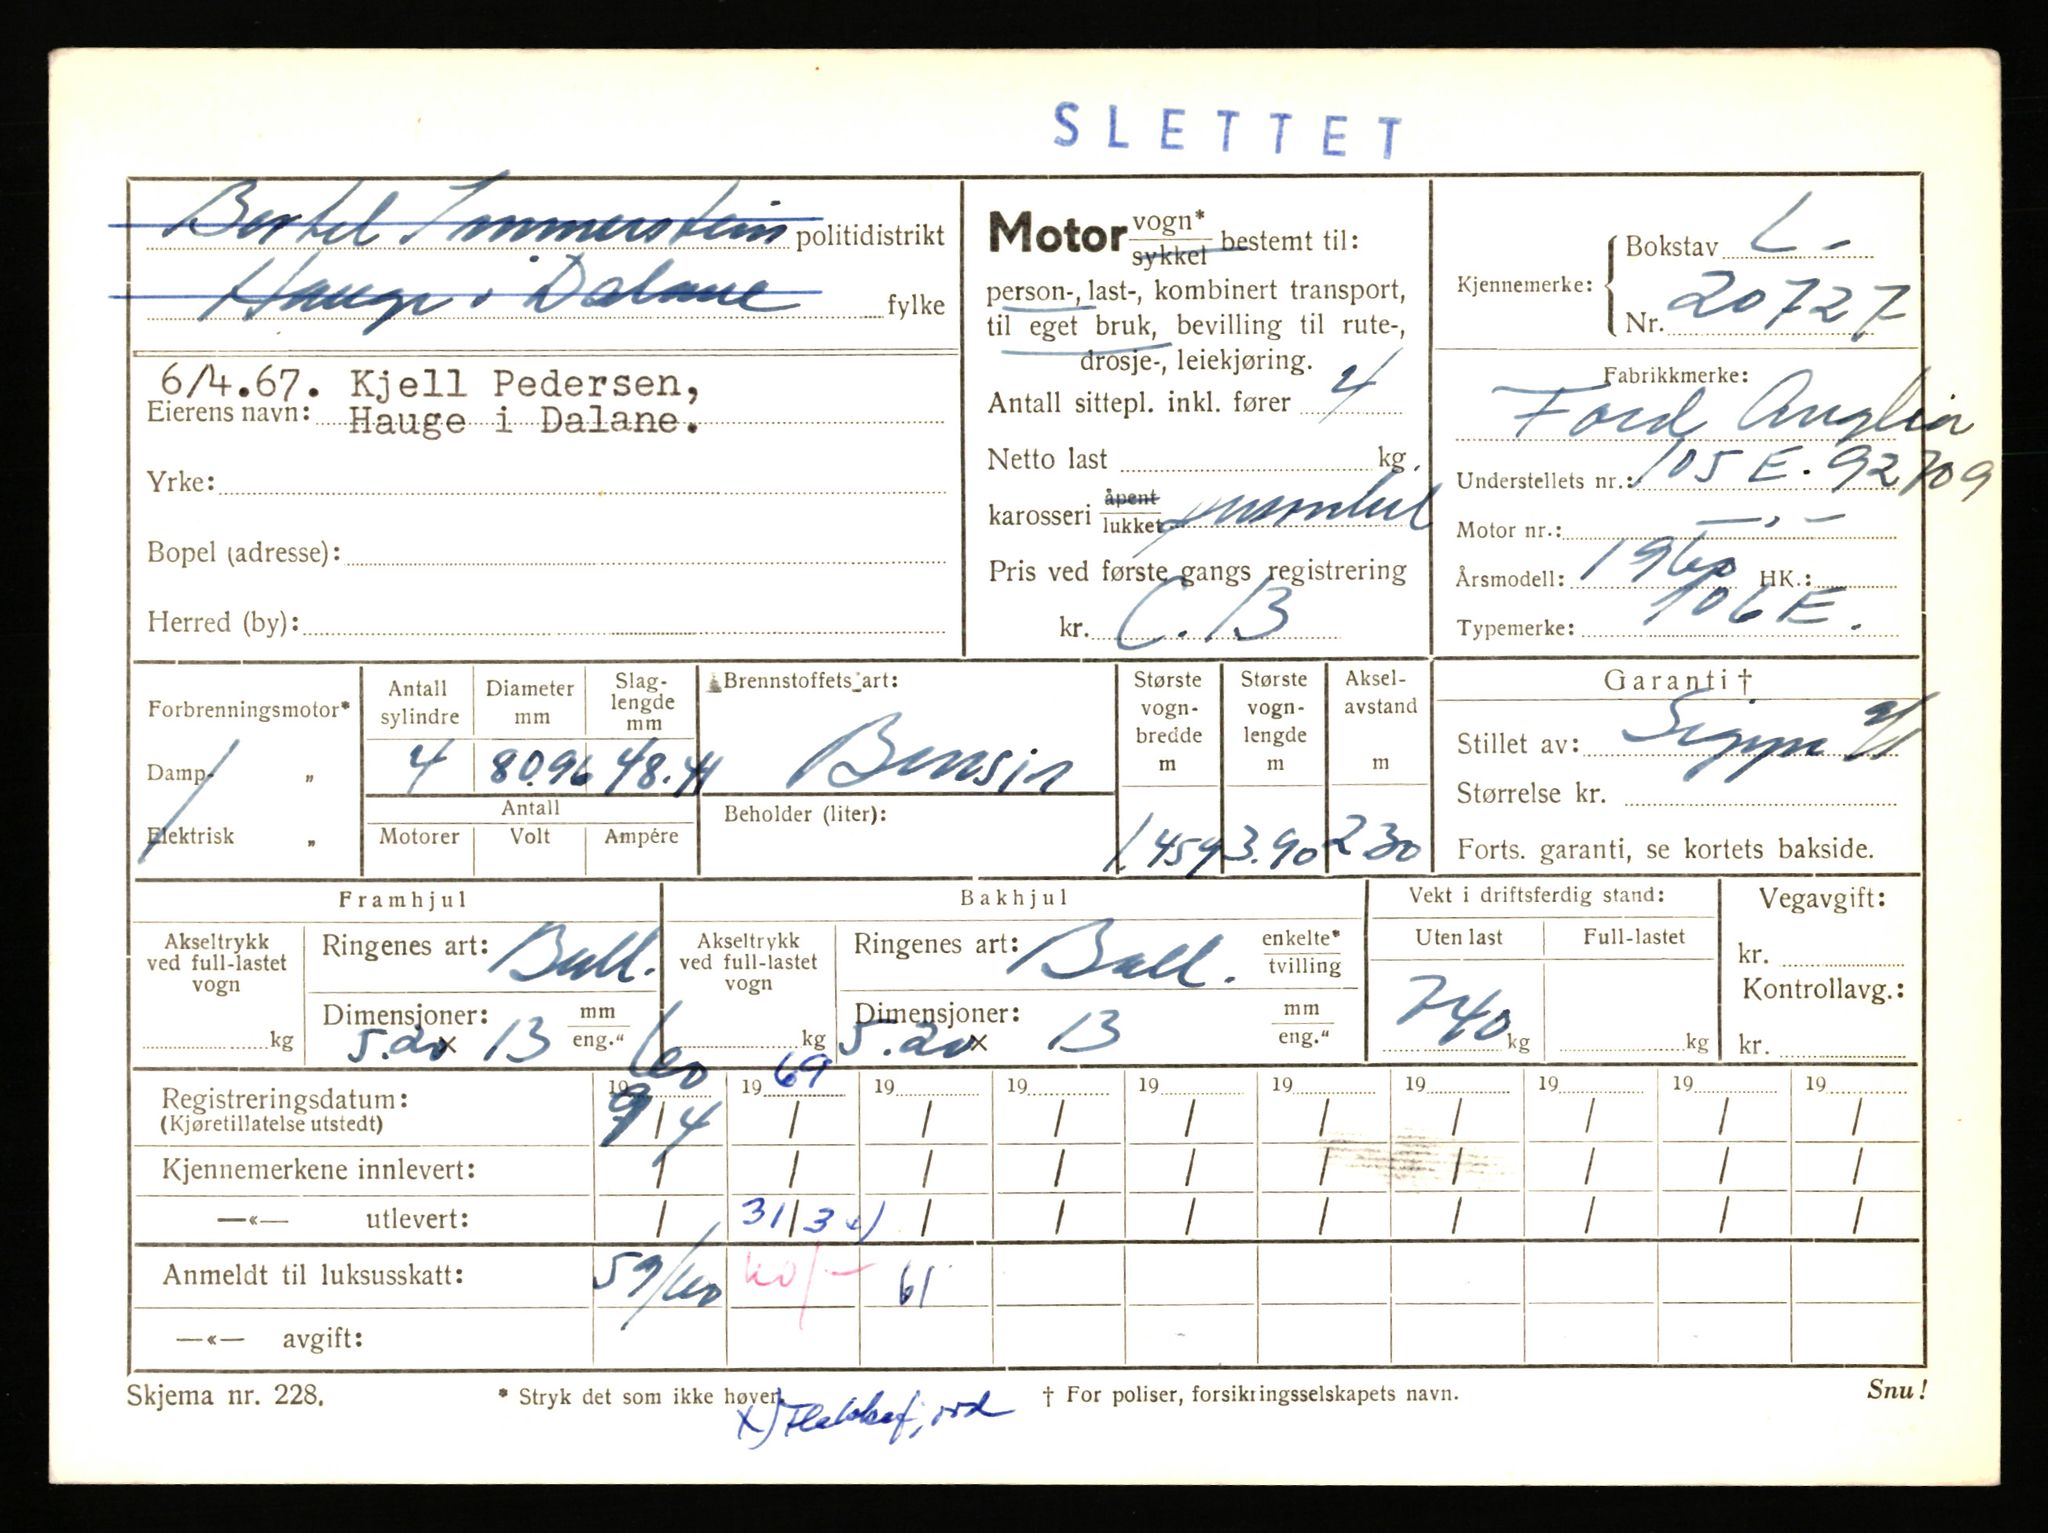 SLETTET
Bertel Immerstein politidistrikt
Hauge i Dalane fylke
6/4.67. Kjell Pedersen,
Eierens navn: Hauge i Dalane.
Yrke:
Bopel (adresse):
Herred (by):
Motor vogn* sykkel bestemt til:
person-, last-, kombinert transport,
til eget bruk, bevilling til rute-,
drosje-, leiekjøring.
Antall sittepl. inkl. fører 4
Netto last kg.
karosseri åpent lukket
Pris ved første gangs registrering
kr. C.B
Kjennemerke: Bokstav L -
Nr. 20727
Fabrikkmerke:
Ford Anglia
Understellets nr.: 105 E. 92709
Motor nr.: — „ —
Årsmodell: 1960 HK.:
Typemerke: 106 E.
Forbrenningsmotor*
Damp- „
Elektrisk „
Antall sylindre 4
Diameter mm 80.96
Slag-lengde mm 48.41
Antall
Motorer Volt Ampére
Brennstoffets art:
Bensin
Beholder (liter):
Største vogn-bredde m 1.454
Største vogn-lengde m 3.90
Aksel-avstand m 230
Garanti †
Stillet av:
Størrelse kr.
Forts. garanti, se kortets bakside.
Framhjul
Akseltrykk ved full-lastet vogn kg
Ringenes art: Ball.
Dimensjoner: mm eng."
5.20 x 13
Bakhjul
Akseltrykk ved full-lastet vogn kg
Ringenes art: Ball. enkelte* tvilling
Dimensjoner: mm eng."
5.20 x 13
Vekt i driftsferdig stand:
Uten last Full-lastet
740 kg kg
Vegavgift:
kr.
Kontrollavg.:
kr.
19 60 19 69 19 19 19 19 19 19 19 19
Registreringsdatum: 9/4 / / / / / / / / /
(Kjøretillatelse utstedt)
Kjennemerkene innlevert: / / / / / / / / / /
—«— utlevert: / 31/3 x) / / / / / / / /
Anmeldt til luksusskatt: 59/60 60/- 61
—«— avgift:
Skjema nr. 228. * Stryk det som ikke høver. † For poliser, forsikringsselskapets navn. Snu!
x) Flekkefjord